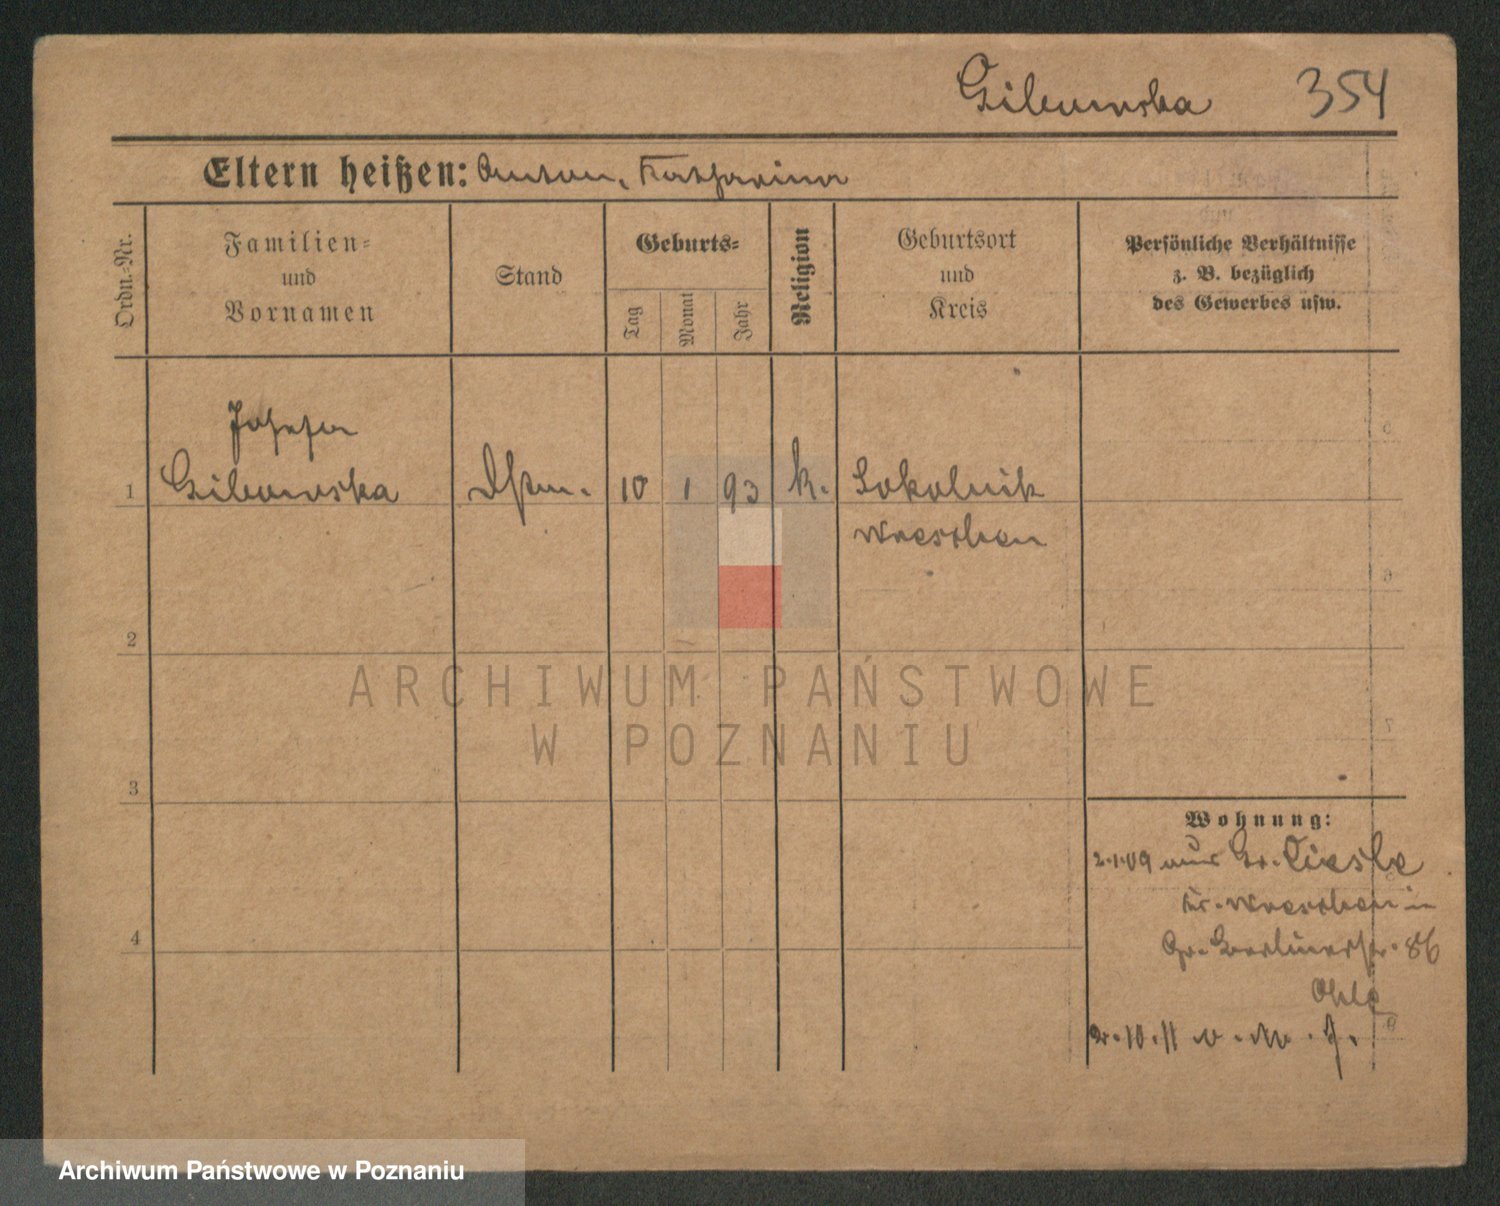 Gibowska 354
Eltern heißen: Anton, Katharina
Ordn.-Nr.
Familien-
und
Vornamen
Stand
Geburts-
Tag
Monat
Jahr
Religion
Geburtsort
und
Kreis
Persönliche Verhältnisse
z. B. bezüglich
des Gewerbes usw.
Josefa
1 Gibowska Dstm. 10 1 93 k. Sokolnik
Wreschen
2
3
4
Wohnung:
2.1.09 aus Gr.
Kr. Wreschen in
Gr. Berlinerstr. 86
10.11
ARCHIWUM PAŃSTWOWE
W POZNANIU
Archiwum Państwowe w Poznaniu